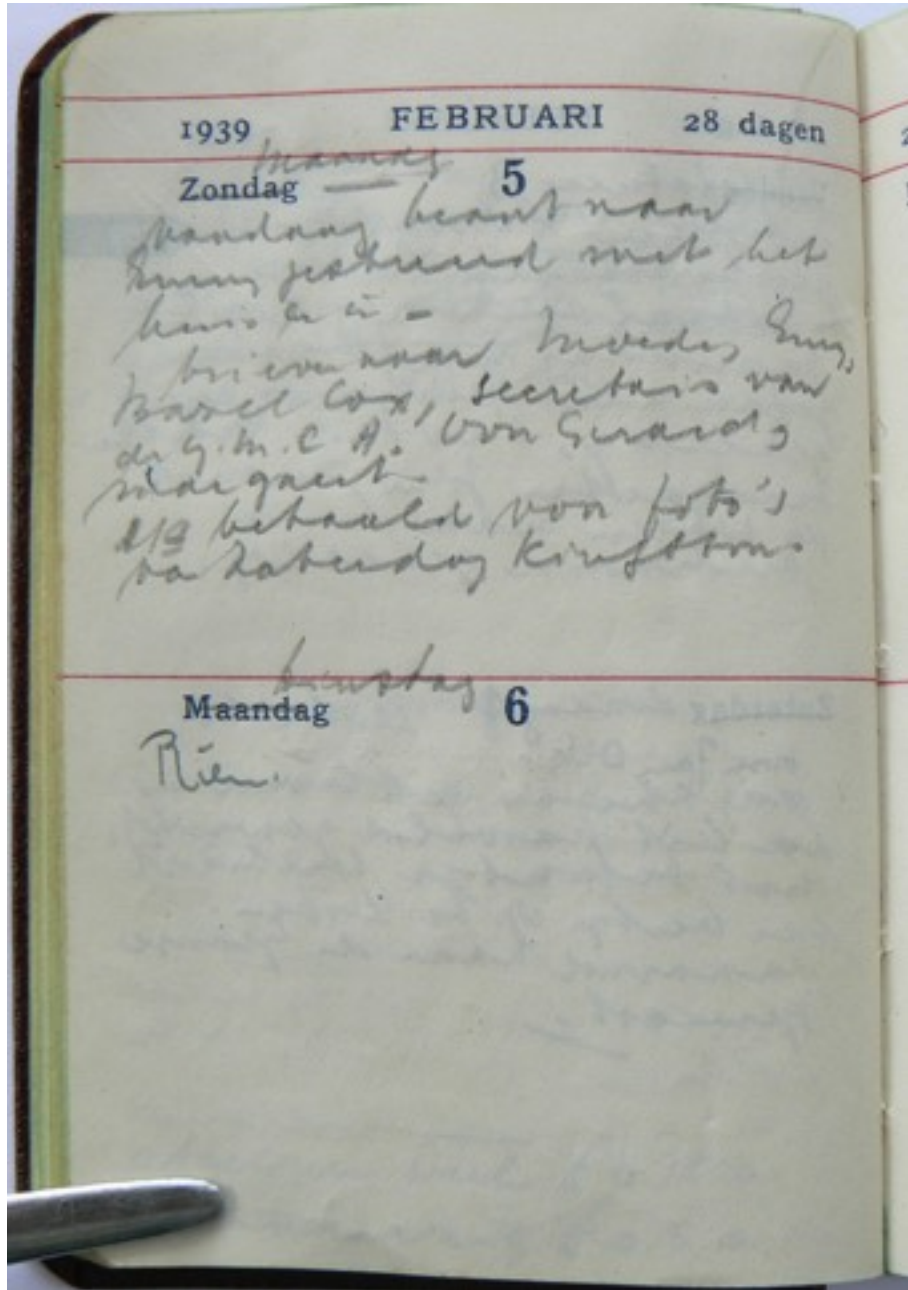 1939 FEBRUARI 28 dagen
maandag
Zondag 5
vandaag krant naar
Emmy gestuurd met het
huis er in -
brieven naar Moeder, Emmy,
Basil Cox, secretaris van
de Y.M.C.A. Von Gerard,
margaert
betaald voor foto's
zaterdag Kingston
dinsdag
Maandag 6
Rien.